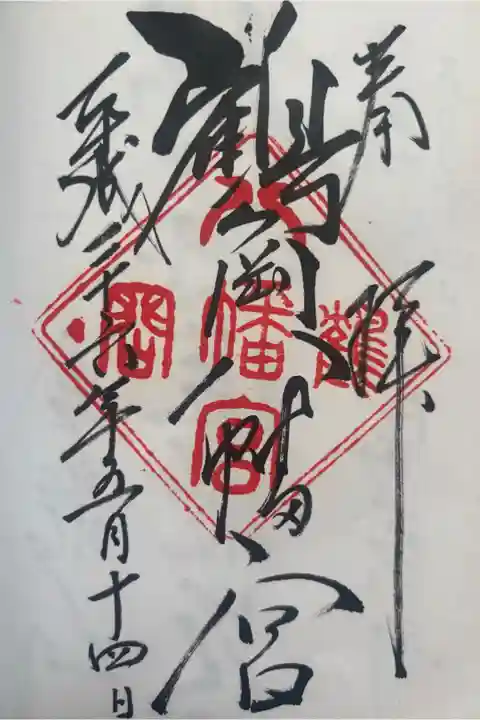 奉拝
鶴岡八幡宮
平成二十九年五月十四日
鶴 八幡宮 岡